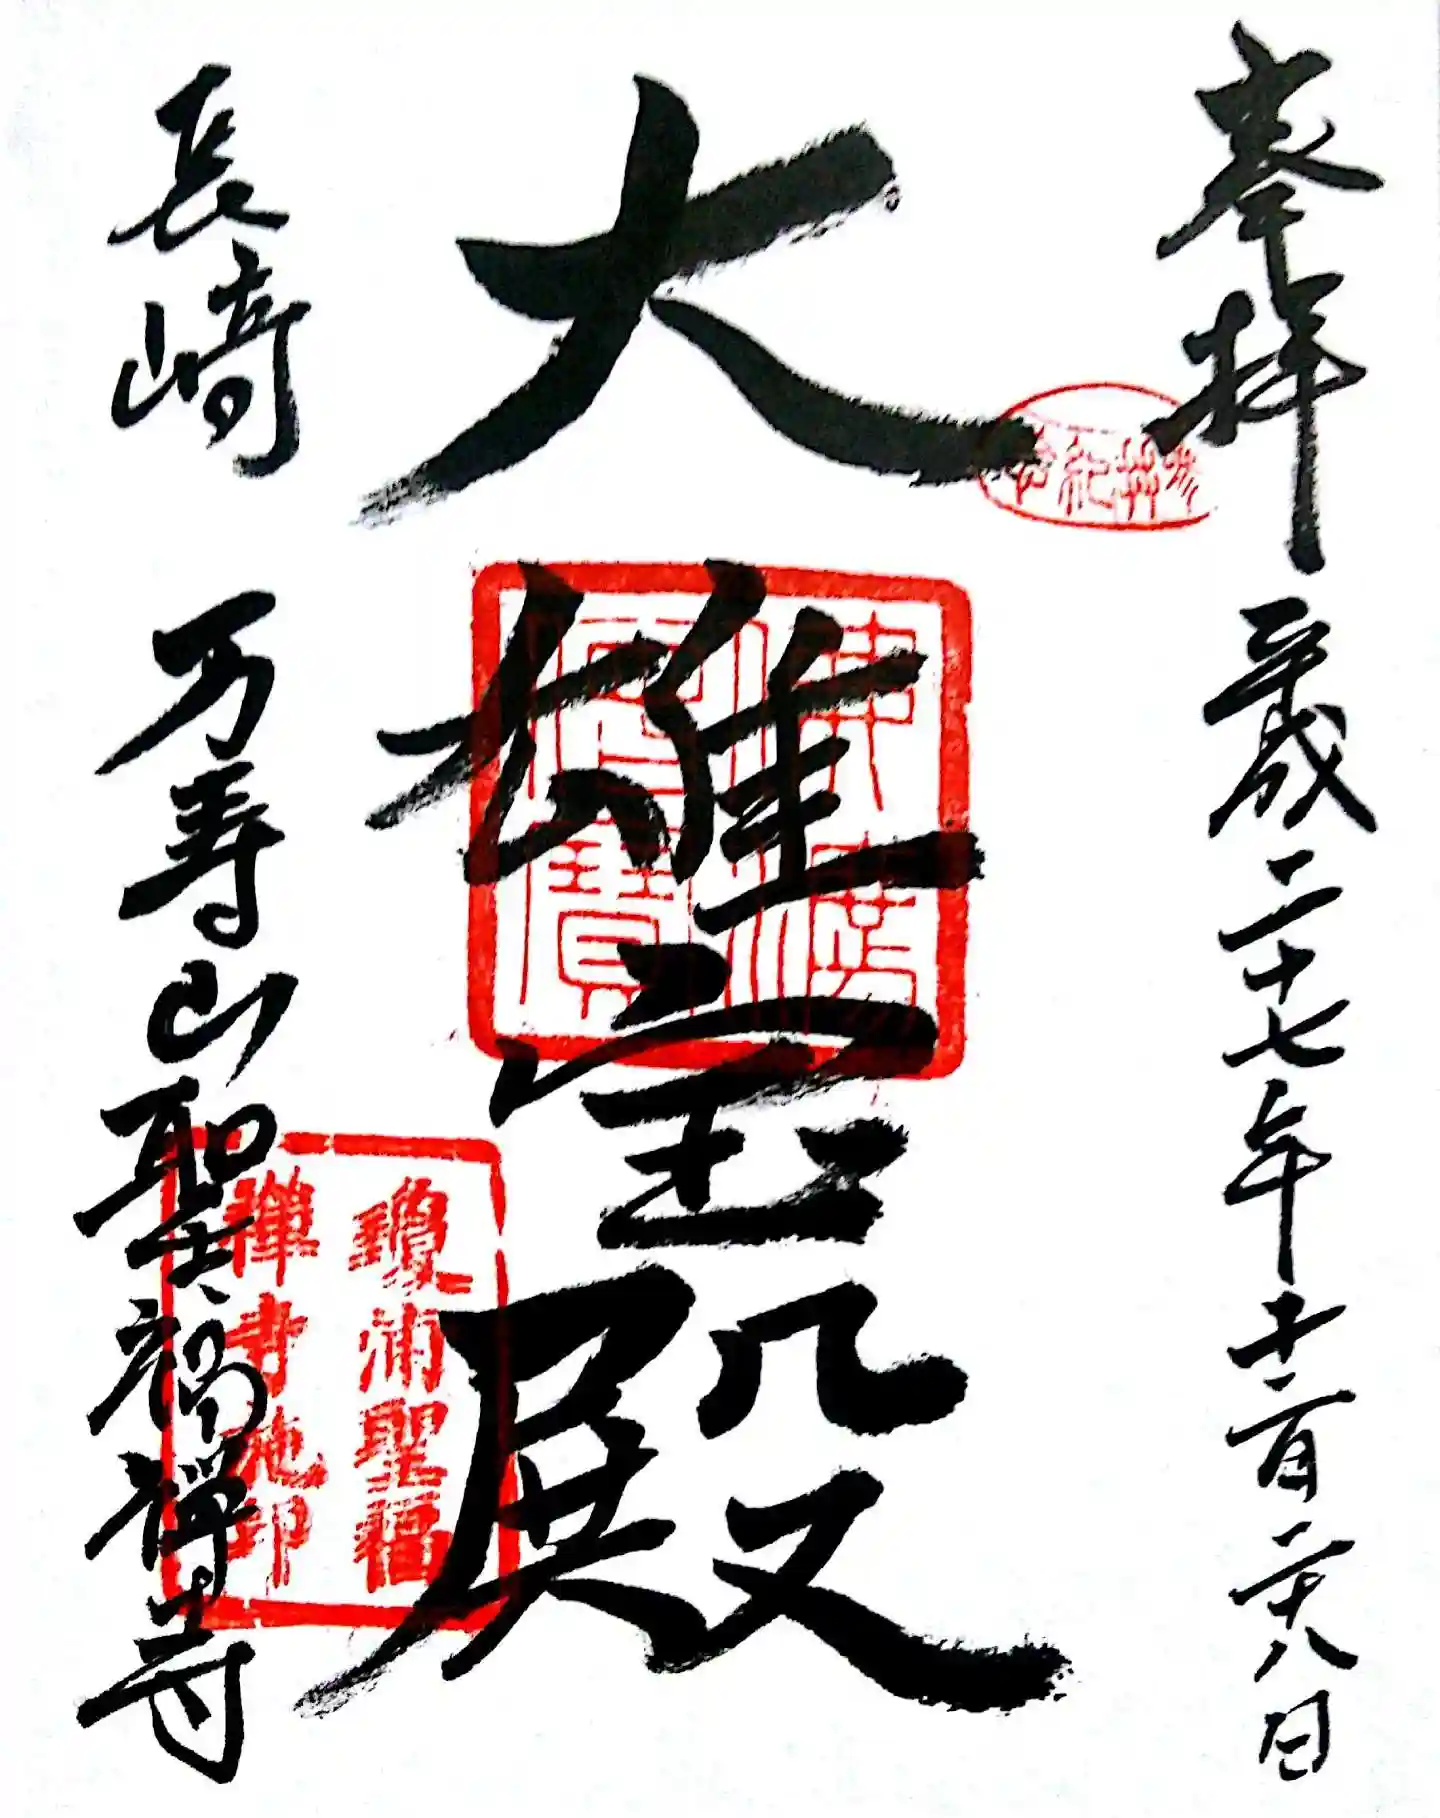 奉拝 平成二十七年十二月二十八日
大雄宝殿
長崎 万寿山聖福禅寺
佛法僧寶
瓊浦聖福
禅寺施印